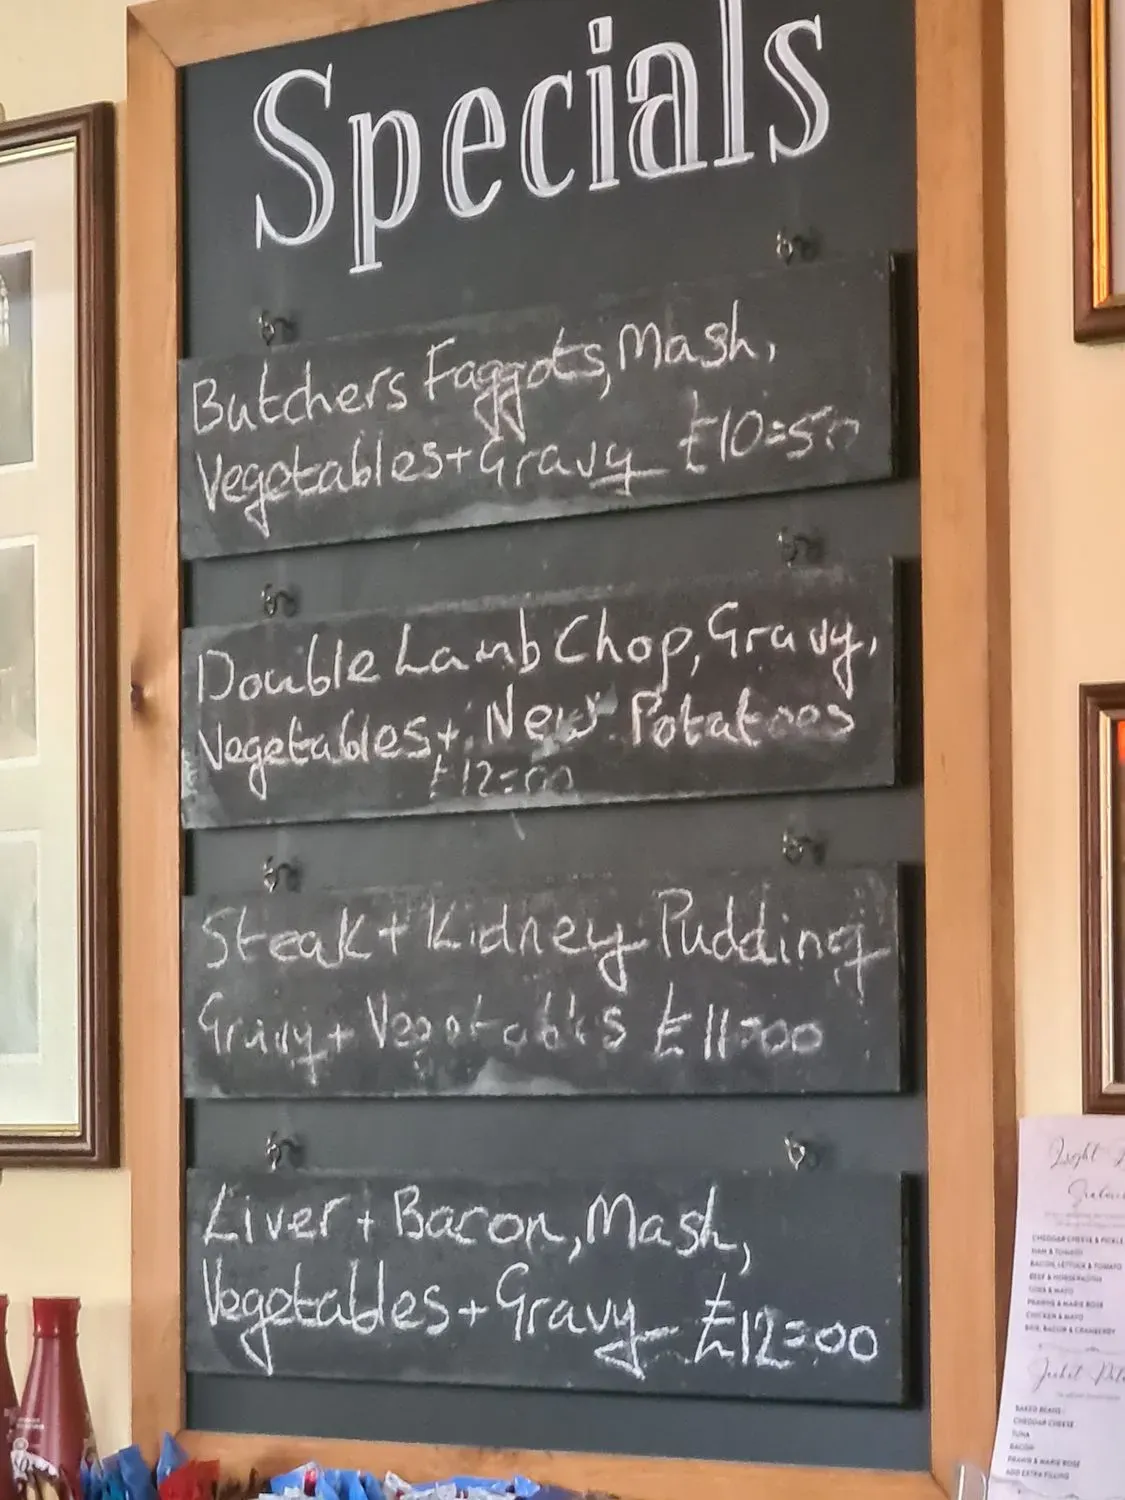 Specials
Butchers Faggots, Mash,
Vegetables + Gravy £10=50
Double Lamb Chop, Gravy,
Vegetables + New Potatoes
£12=00
Steak + Kidney Pudding
Gravy + Vegetables £11=00
Liver + Bacon, Mash,
Vegetables + Gravy £12=00
Light
CHEDDAR CHEESE & PICKLE
HAM & TOMATO
BACON, LETTUCE & TOMATO
BEEF & HORSERADISH
TUNA & MAYO
PRAWNS & MARIE ROSE
CHICKEN & MAYO
BRIE, BACON & CRANBERRY
Jacket
BAKED BEANS
CHEDDAR CHEESE
TUNA
BACON
PRAWN & MARIE ROSE
ADD EXTRA FILLING